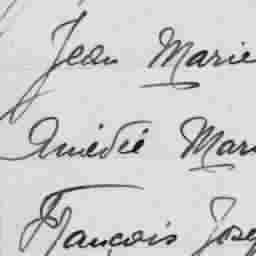 Jean Marie
Amédée Mar
François Jose